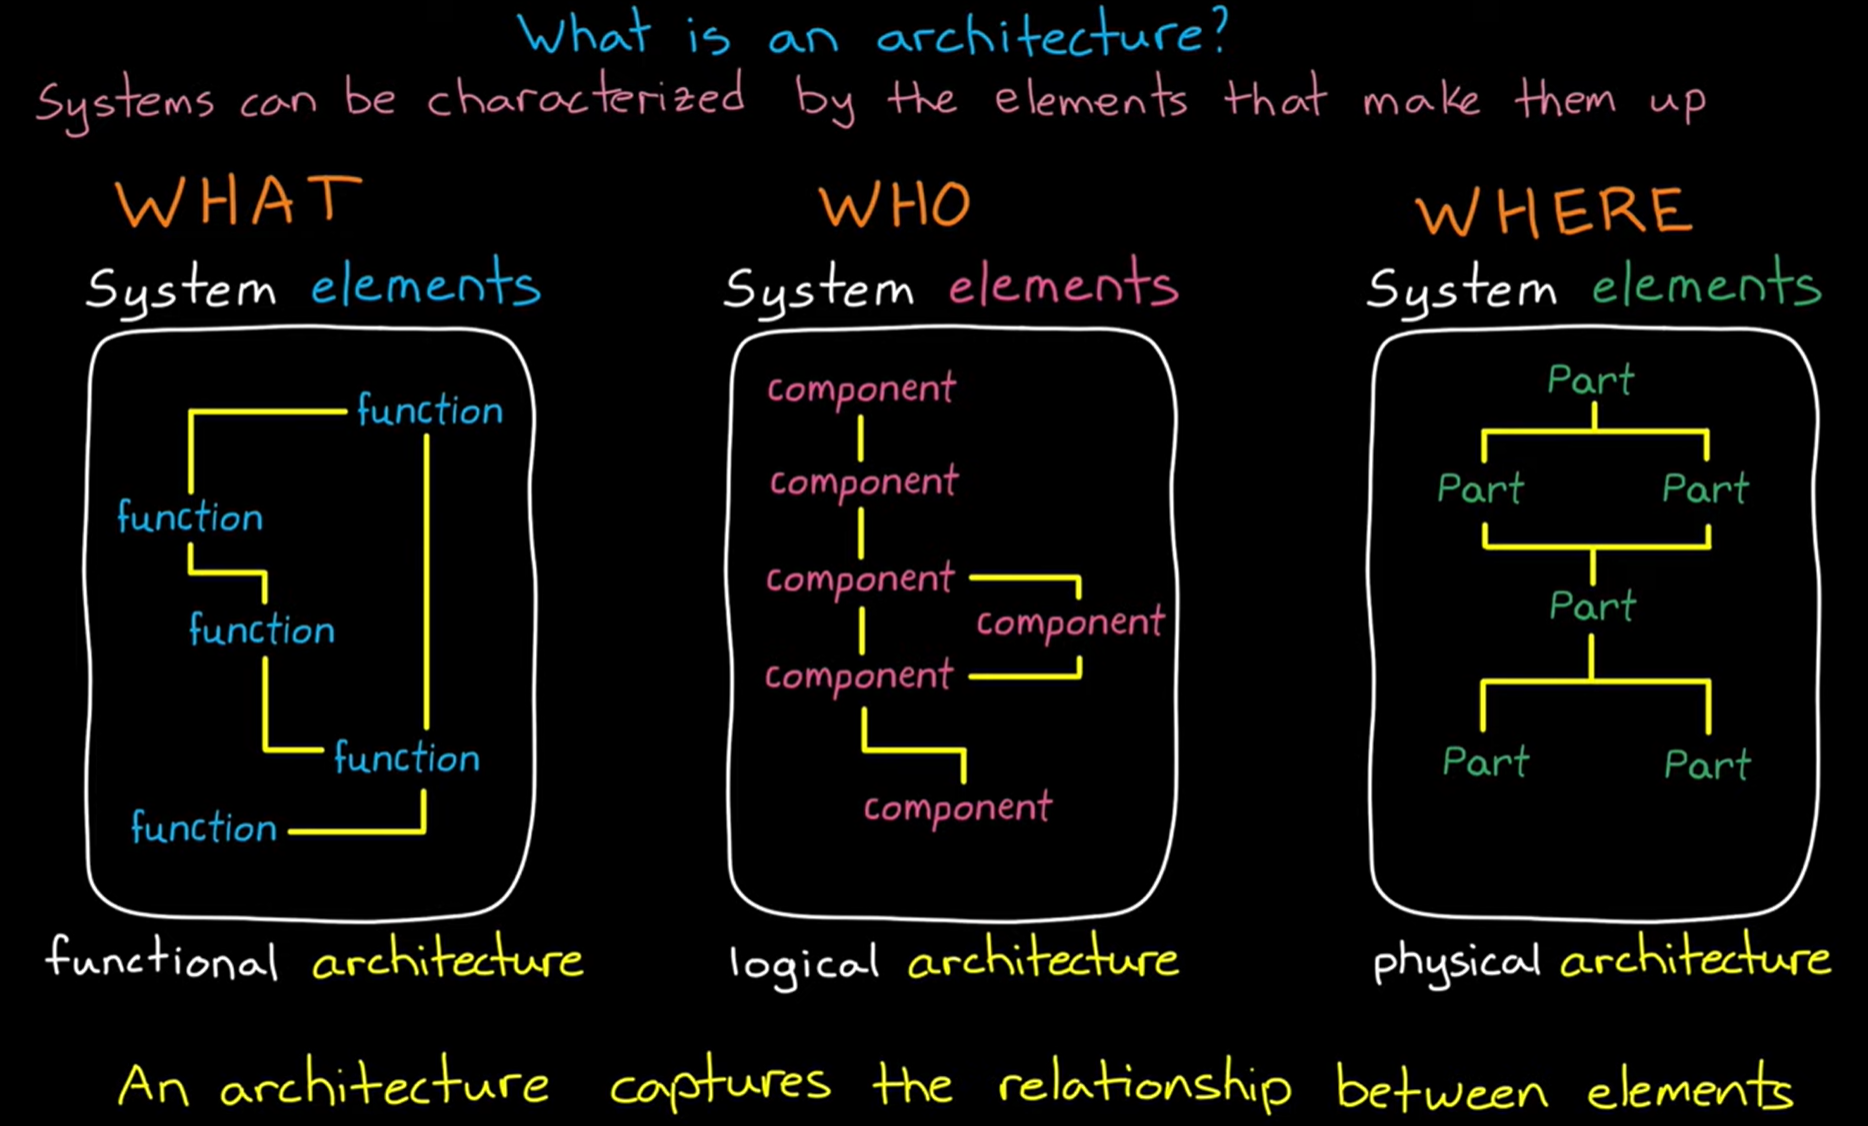 What is an architecture?
Systems can be characterized by the elements that make them up
WHAT
System elements
function
function
function
function
function
functional architecture
WHO
System elements
component
component
component
component
component
component
logical architecture
WHERE
System elements
Part
Part Part
Part
Part Part
physical architecture
An architecture captures the relationship between elements